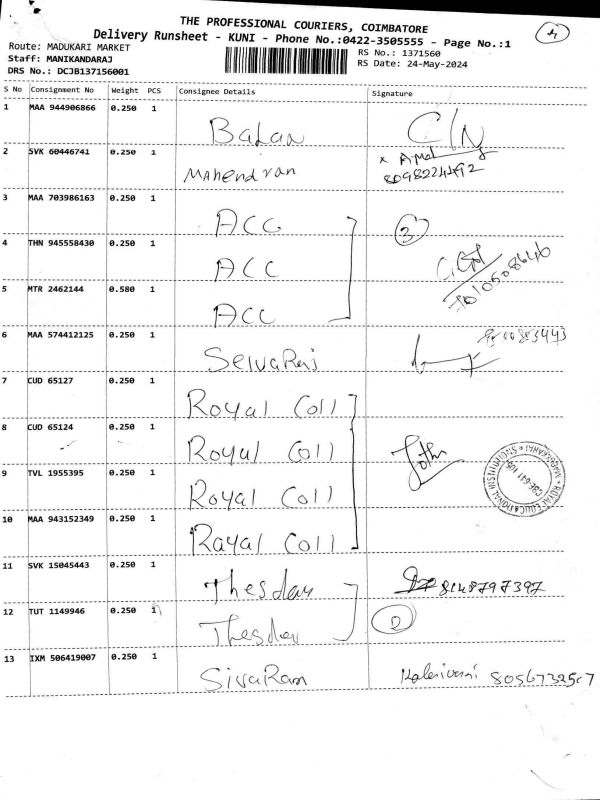 THE PROFESSIONAL COURIERS, COIMBATORE
Delivery Runsheet - KUNI - Phone No.:0422-3505555 - Page No.:1
Route: MADUKARI MARKET
RS No.: 1371560
Staff: MANIKANDARAJ
RS Date: 24-May-2024
DRS No.: DCJB137156001
S No Consignment No Weight PCS Consignee Details Signature
1 MAA 944906866 0.250 1 Balan C/N
2 SVK 60446741 0.250 1 Mahendran
3 MAA 703986163 0.250 1 ACC 3
4 THN 945558430 0.250 1 ACC
5 MTR 2462144 0.580 1 ACC
6 MAA 574412125 0.250 1 SelvaRaj
7 CUD 65127 0.250 1 Royal Coll
8 CUD 65124 0.250 1 Royal Coll
9 TVL 1955395 0.250 1 Royal Coll
10 MAA 943152349 0.250 1 Rayal Coll
11 SVK 15045443 0.250 1 8148797397
12 TUT 1149946 0.250 1 2
13 IXM 506419007 0.250 1 SivaRam